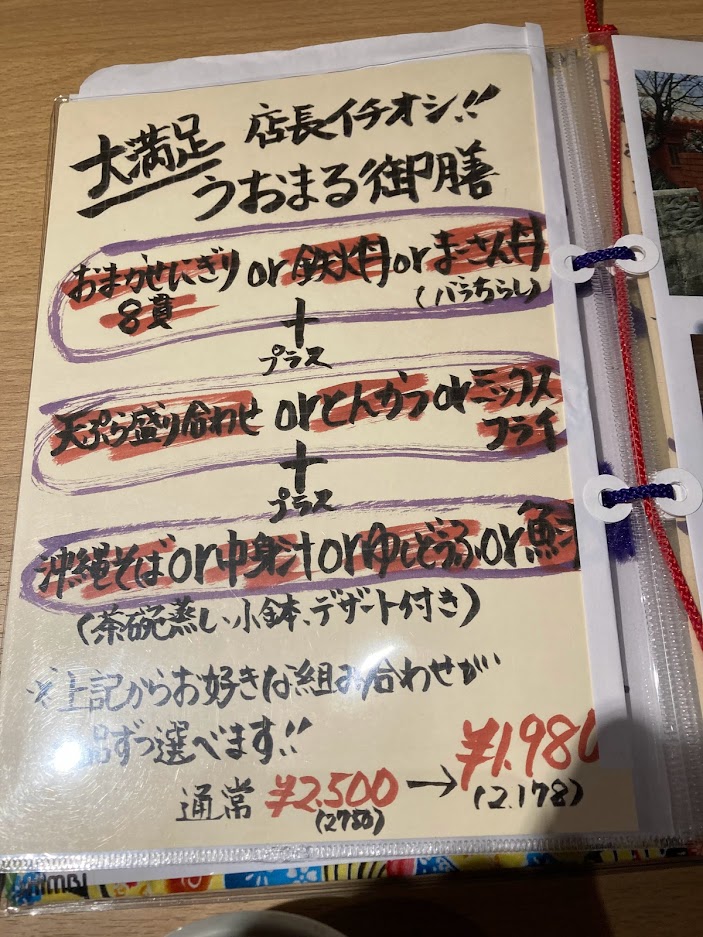 大満足 店長イチオシ!!
うおまる御膳
おまかせにぎり or 鉄火丼 or まーさん丼
8貫 (バラちらし)
+
プラス
天ぷら盛り合わせ or とんかつ or ミックス
フライ
+
プラス
沖縄そば or 中身汁 or ゆしどうふ or 魚汁
(茶碗蒸し、小鉢、デザート付き)
※上記からお好きな組み合わせが
品ずつ選べます!!
通常 ¥2.500 → ¥1.980
(2750) (2.178)